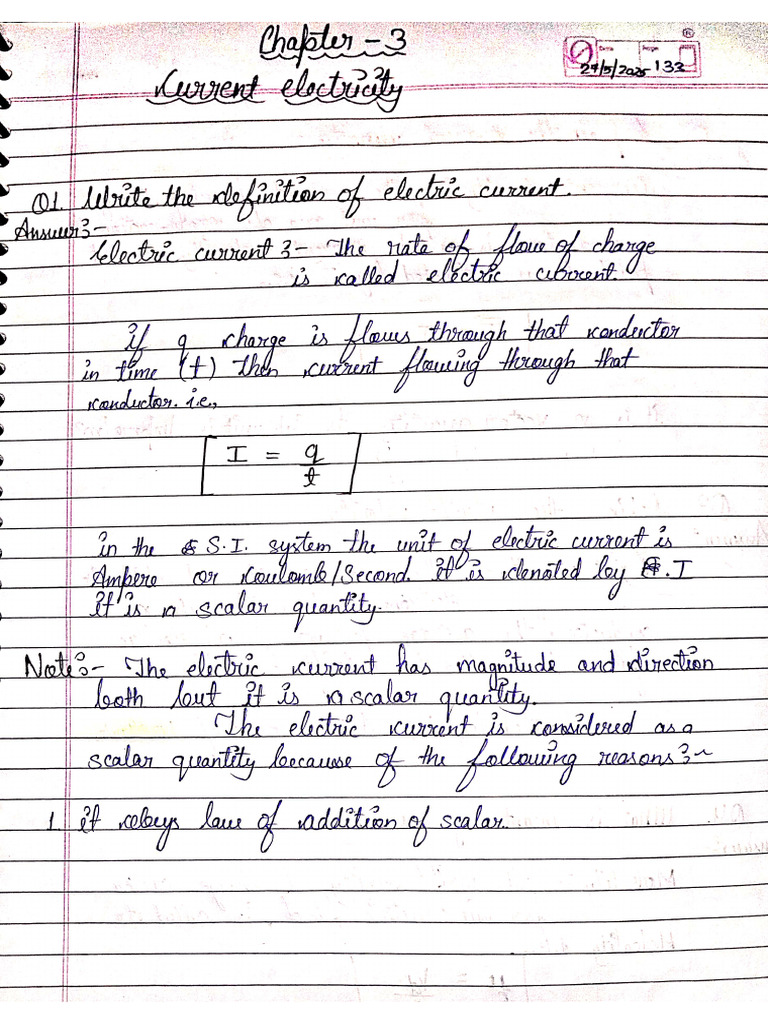 Chapter - 3
Date Page
27/5/2025 133
Current electricity
Q1. Write the definition of electric current.
Answer:-
Electric current :- The rate of flow of charge
is called electric current.
if q charge is flows through that conductor
in time (t) then current flowing through that
conductor. i.e,
I = q/t
in the S.I. system the unit of electric current is
Ampere or Coulomb/Second. it is denoted by I
it is a scalar quantity.
Note:- The electric current has magnitude and direction
both but it is a scalar quantity.
The electric current is considered as a
scalar quantity because of the following reasons :-
1. it obeys law of addition of scalar.